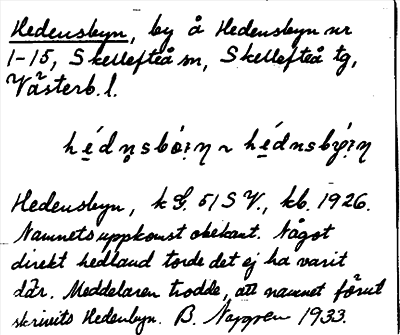 Hedensbyn, by å Hedensbyn nr
1-15, Skellefteå sn, Skellefteå tg,
Västerb. l.
hé̤dn̥sbó̤:n ~ hé̤dnsbý:n
Hedensbyn, k G. 51 S V., kb. 1926.
Namnets uppkomst obekant. Något
direkt hedland torde det ej ha varit
där. Meddelaren trodde, att namnet förut
skrivits Hedenbyn. B. 1933.